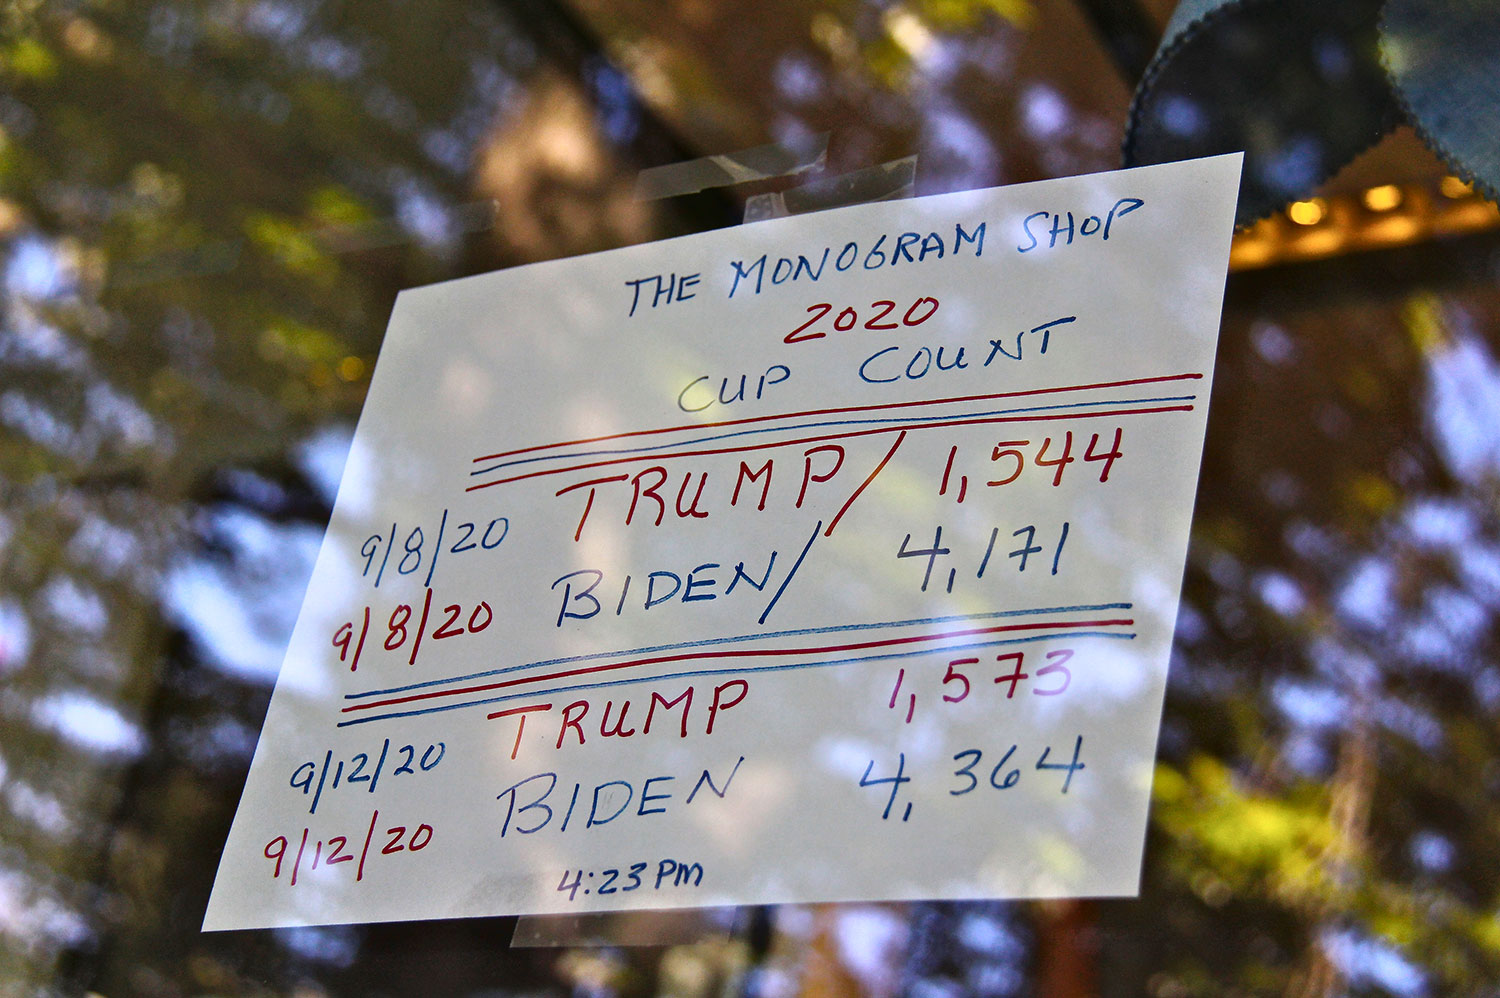 THE MONOGRAM SHOP
2020
CUP COUNT
9/8/20 TRUMP/ 1,544
9/8/20 BIDEN/ 4,171
9/12/20 TRUMP 1,573
9/12/20 BIDEN 4,364
4:23 PM